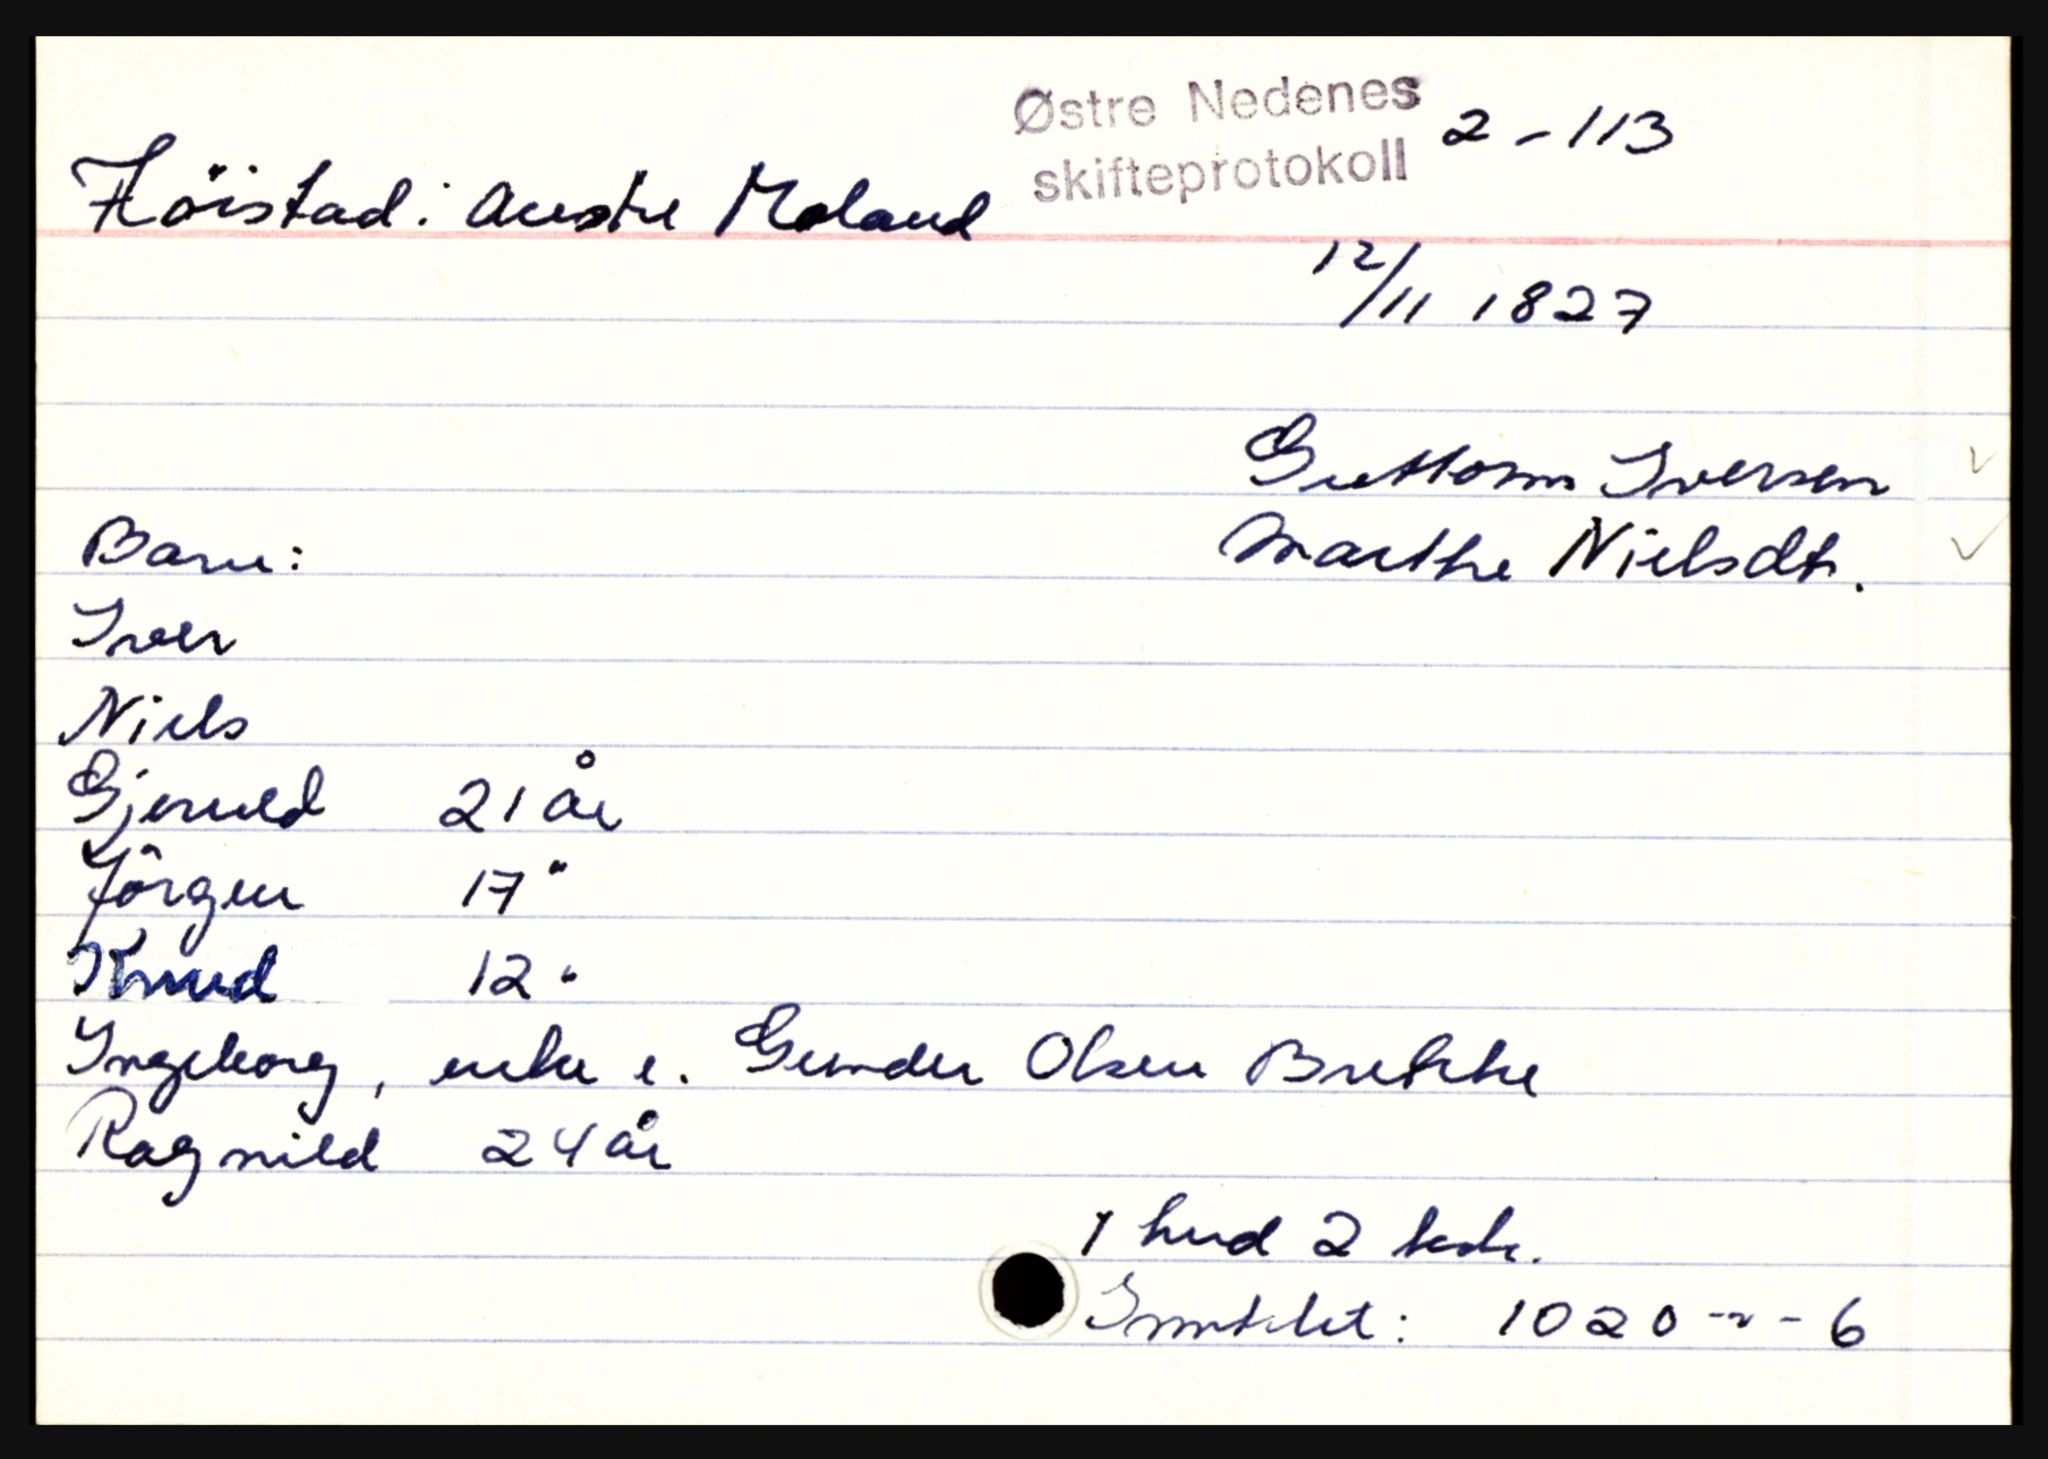 Østre Nedenes
skifteprotokoll 2 - 113
Höistad: Austre Moland
12/11 1827
Guttorm Iversen
Marthe Nielsdtr.
Barn:
Iver
Niels
Gjeruld 21 år
Jörgen 17 "
Knud 12 "
Ingeborg, enke e. Gunder Olsen Brekke
Ragnild 24 år
1 hud 2 kalv.
Inntekt: 1020 - " - 6